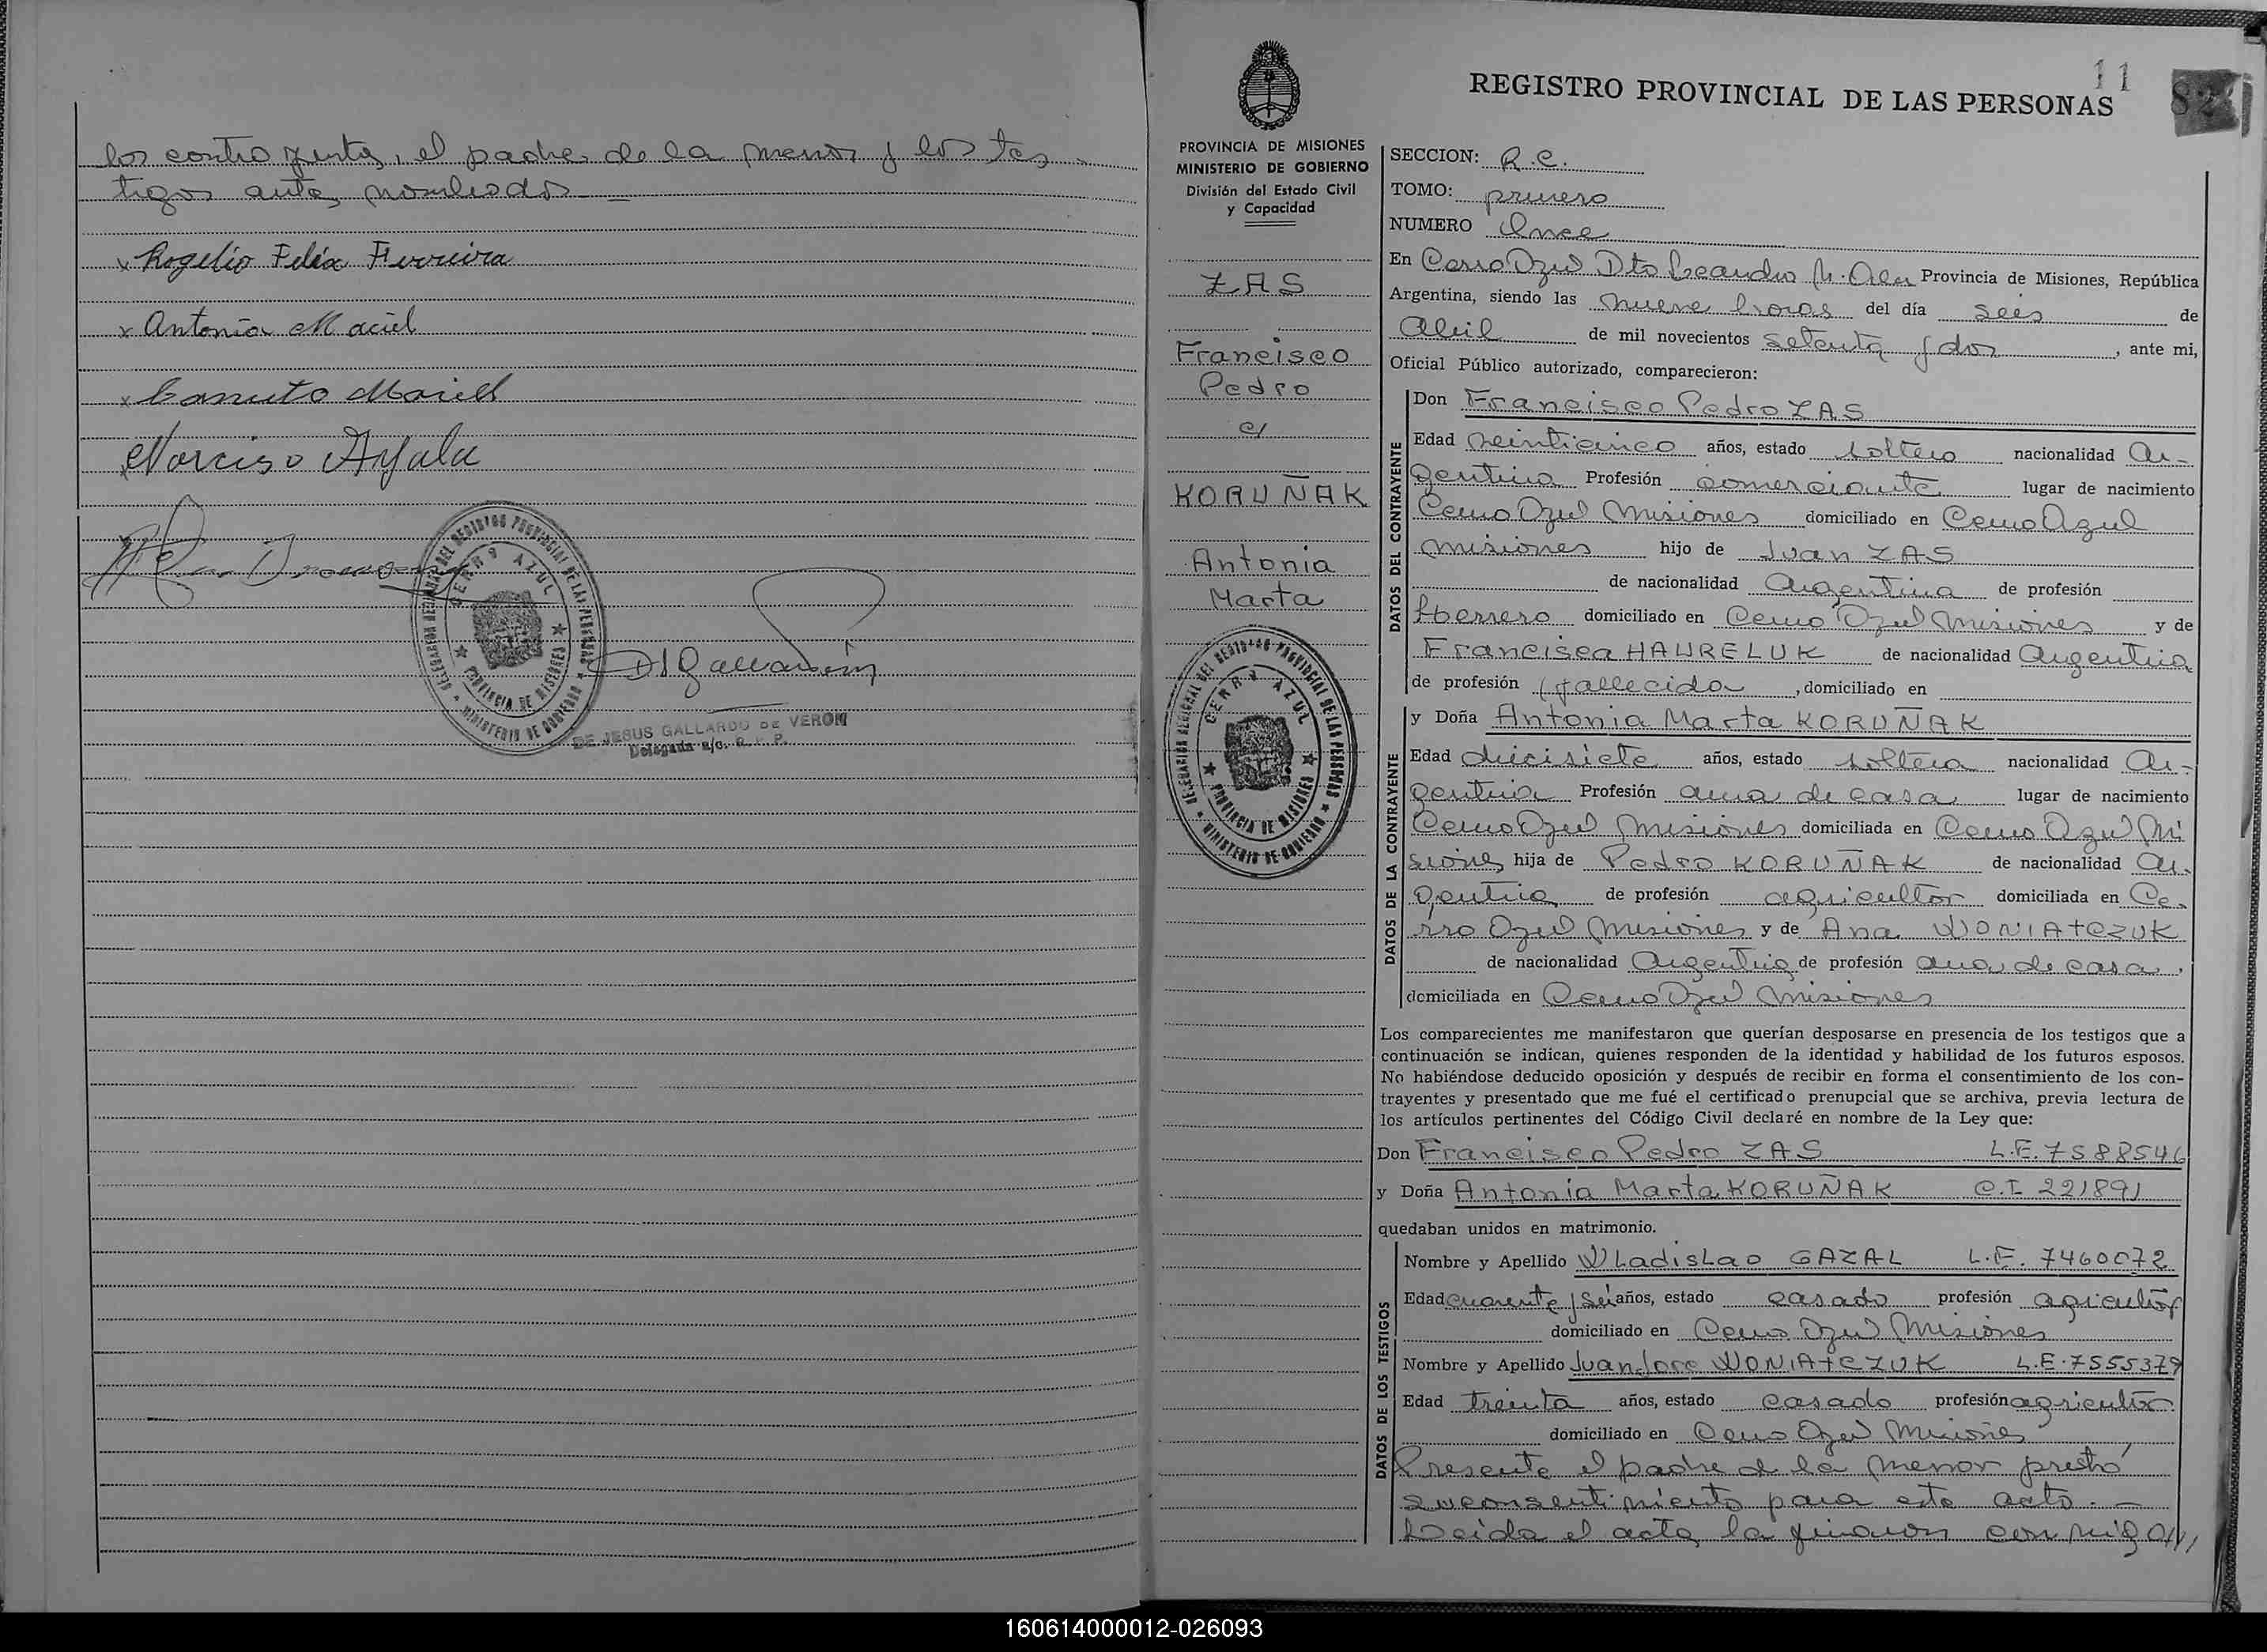 los contrayentes, el padre de la menor y los tes-
tigos antes nombrados
x Rogelio Felix Ferreira
x Antonia Maciel
x Canuto Maciel
x Narciso Ayala
DELEGACION REGIONAL DEL REGISTRO PROVINCIAL DE LAS PERSONAS
CERRO AZUL
PROVINCIA DE MISIONES
MINISTERIO DE GOBIERNO
DJGallardo
DE JESUS GALLARDO DE VERON
Delegada a/c. R. P. P.
11
82
REGISTRO PROVINCIAL DE LAS PERSONAS
PROVINCIA DE MISIONES
MINISTERIO DE GOBIERNO
División del Estado Civil
y Capacidad
ZAS
Francisco
Pedro
c/
KORUÑAK
Antonia
Marta
DELEGACION REGIONAL DEL REGISTRO PROVINCIAL DE LAS PERSONAS
CERRO AZUL
PROVINCIA DE MISIONES
MINISTERIO DE GOBIERNO
SECCION: R.C.
TOMO: primero
NUMERO Once
En Cerro Azul Dto Leandro N. Alem Provincia de Misiones, República
Argentina, siendo las nueve horas del día seis de
Abril de mil novecientos setenta y dos, ante mi,
Oficial Público autorizado, comparecieron:
DATOS DEL CONTRAYENTE
Don Francisco Pedro ZAS
Edad veinticinco años, estado soltero nacionalidad Ar-
gentina Profesión comerciante lugar de nacimiento
Cerro Azul Misiones domiciliado en Cerro Azul
Misiones hijo de Juan ZAS
de nacionalidad Argentina de profesión
Herrero domiciliado en Cerro Azul Misiones y de
Francisca HAURELUK de nacionalidad Argentina
de profesión (fallecida , domiciliado en
DATOS DE LA CONTRAYENTE
y Doña Antonia Marta KORUÑAK
Edad diecisiete años, estado soltera nacionalidad Ar-
gentina Profesión ama de casa lugar de nacimiento
Cerro Azul Misiones domiciliada en Cerro Azul Mi
siones hija de Pedro KORUÑAK de nacionalidad Ar-
gentina de profesión agricultor domiciliada en Ce-
rro Azul Misiones y de Ana WONIATCZUK
de nacionalidad Argentina de profesión ama de casa,
domiciliada en Cerro Azul Misiones
Los comparecientes me manifestaron que querían desposarse en presencia de los testigos que a
continuación se indican, quienes responden de la identidad y habilidad de los futuros esposos.
No habiéndose deducido oposición y después de recibir en forma el consentimiento de los con-
trayentes y presentado que me fué el certificado prenupcial que se archiva, previa lectura de
los artículos pertinentes del Código Civil declaré en nombre de la Ley que:
Don Francisco Pedro ZAS L.E. 7588546
y Doña Antonia Marta KORUÑAK C.I. 221891
quedaban unidos en matrimonio.
DATOS DE LOS TESTIGOS
Nombre y Apellido Wladislao GAZAL L.E. 7460072
Edad cuarenta y seis años, estado casado profesión agricultor
domiciliado en Cerro Azul Misiones
Nombre y Apellido Juan Jose WONIATCZUK L.E. 7555379
Edad treinta años, estado casado profesión agricultor
domiciliado en Cerro Azul Misiones
Presente el padre de la menor prestó
su consentimiento para este acto. -
Leida el acta la firmaron conmigo
160614000012-026093